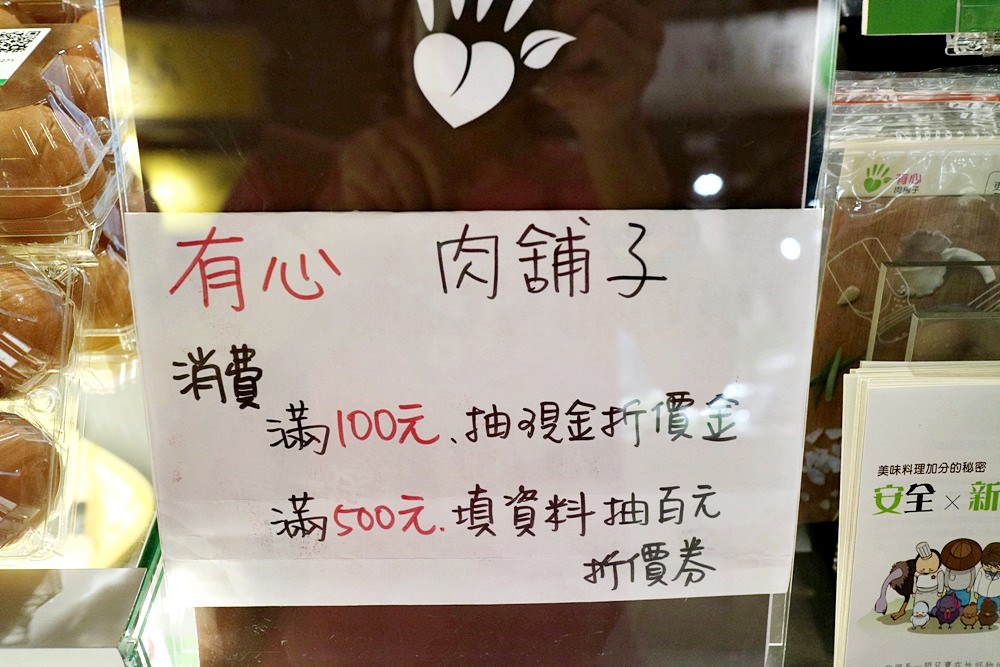 有心 肉舖子
消費
滿100元、抽現金折價金
滿500元.填資料抽百元
折價券
有心
肉舖子
美味料理加分的秘密
安全×新